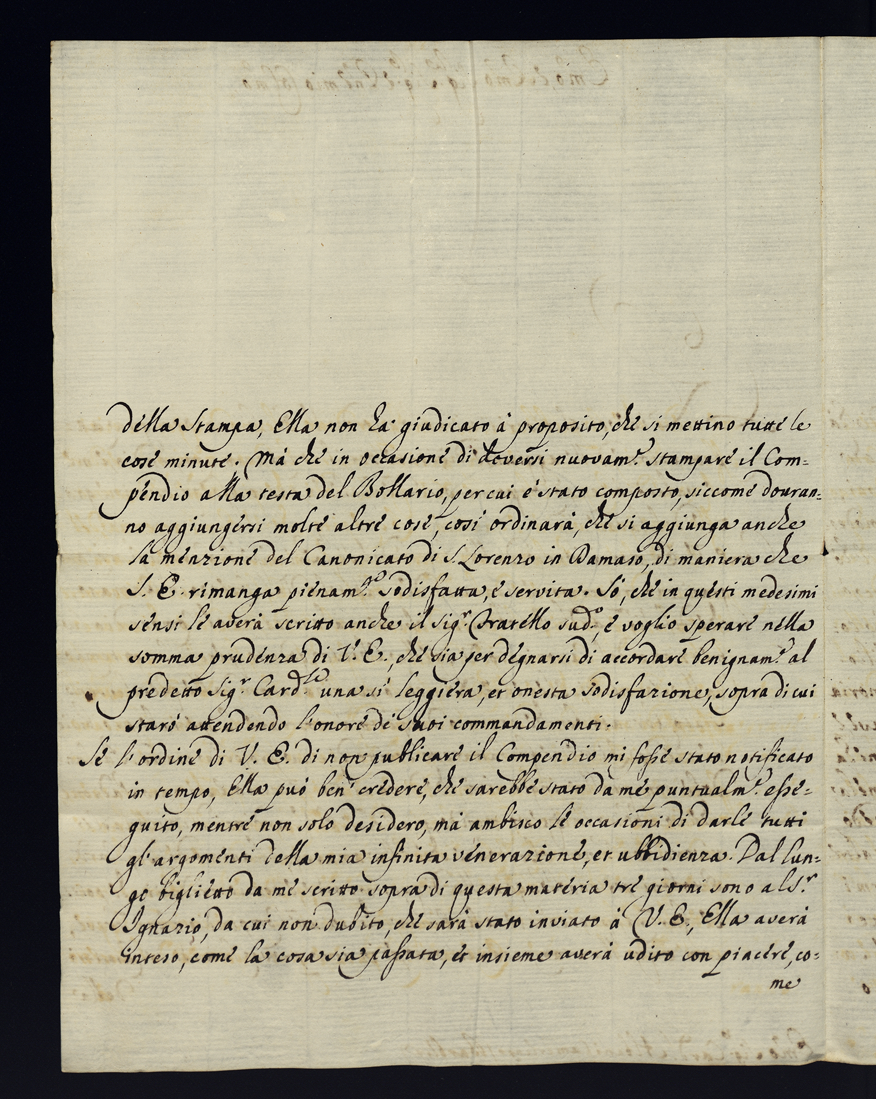 della Stampa, Ella non hà giudicato à proposito, che si mettino tutte le
cose minute. Mà che in occasione di doversi nuovam.e stampare il Com=
pendio alla testa del Bollario, per cui è stato composto, siccome douran=
no aggiungersi molte altre cose, così ordinarà, che si aggiunga anche
la menzione del Canonicato di S. Lorenzo in Damaso, di maniera che
S. E. rimanga pienam.e sodisfatta, e servita. Sò, che in questi medesimi
sensi le averà scritto anche il sig.r Fratello sud.o, e voglio sperare nella
somma prudenza di V. E., che sia per degnarsi di accordare benignam.e al
predetto Sig.r Card.le una sì leggiera, et onesta sodisfazione, sopra di cui
starò attendendo l'onore de' suoi commandamenti.
Se l'ordine di V. E. di non publicare il Compendio mi fosse stato notificato
in tempo, Ella può ben' credere, che sarebbe stato da me puntualm.e esse=
guito, mentre non solo desidero, mà ambisco le occasioni di darle tutti
gl'argomenti della mia infinita venerazione, et ubbidienza. Dal lun=
go biglietto da me scritto sopra di questa materia tre giorni sono al S.r
Ignazio, da cui non dubito, che sarà stato inviato à V. E., Ella averà
inteso, come la cosa sia passata, et insieme averà udito con piacere, co=
me